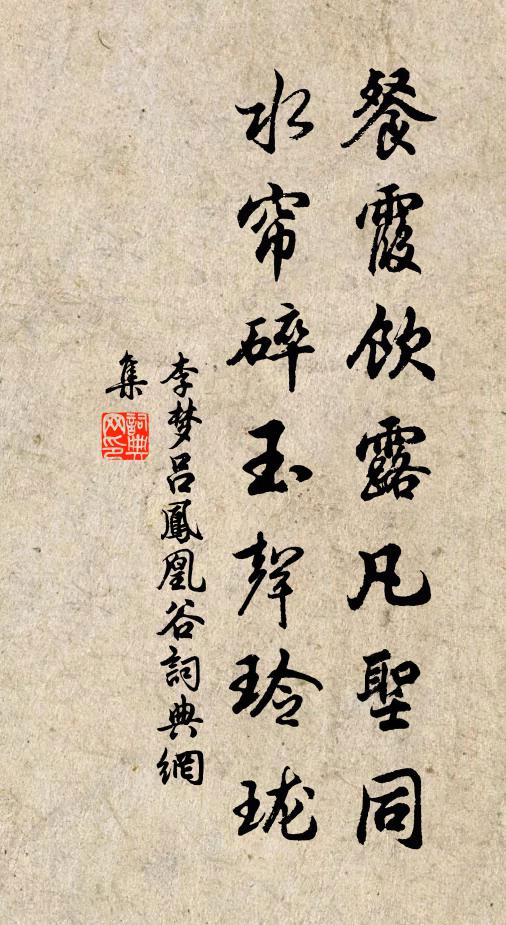 餐霞飲露凡聖同
水帘碎玉聲玲珑
李梦吕鳳凰谷詞典網
集
詞典网印